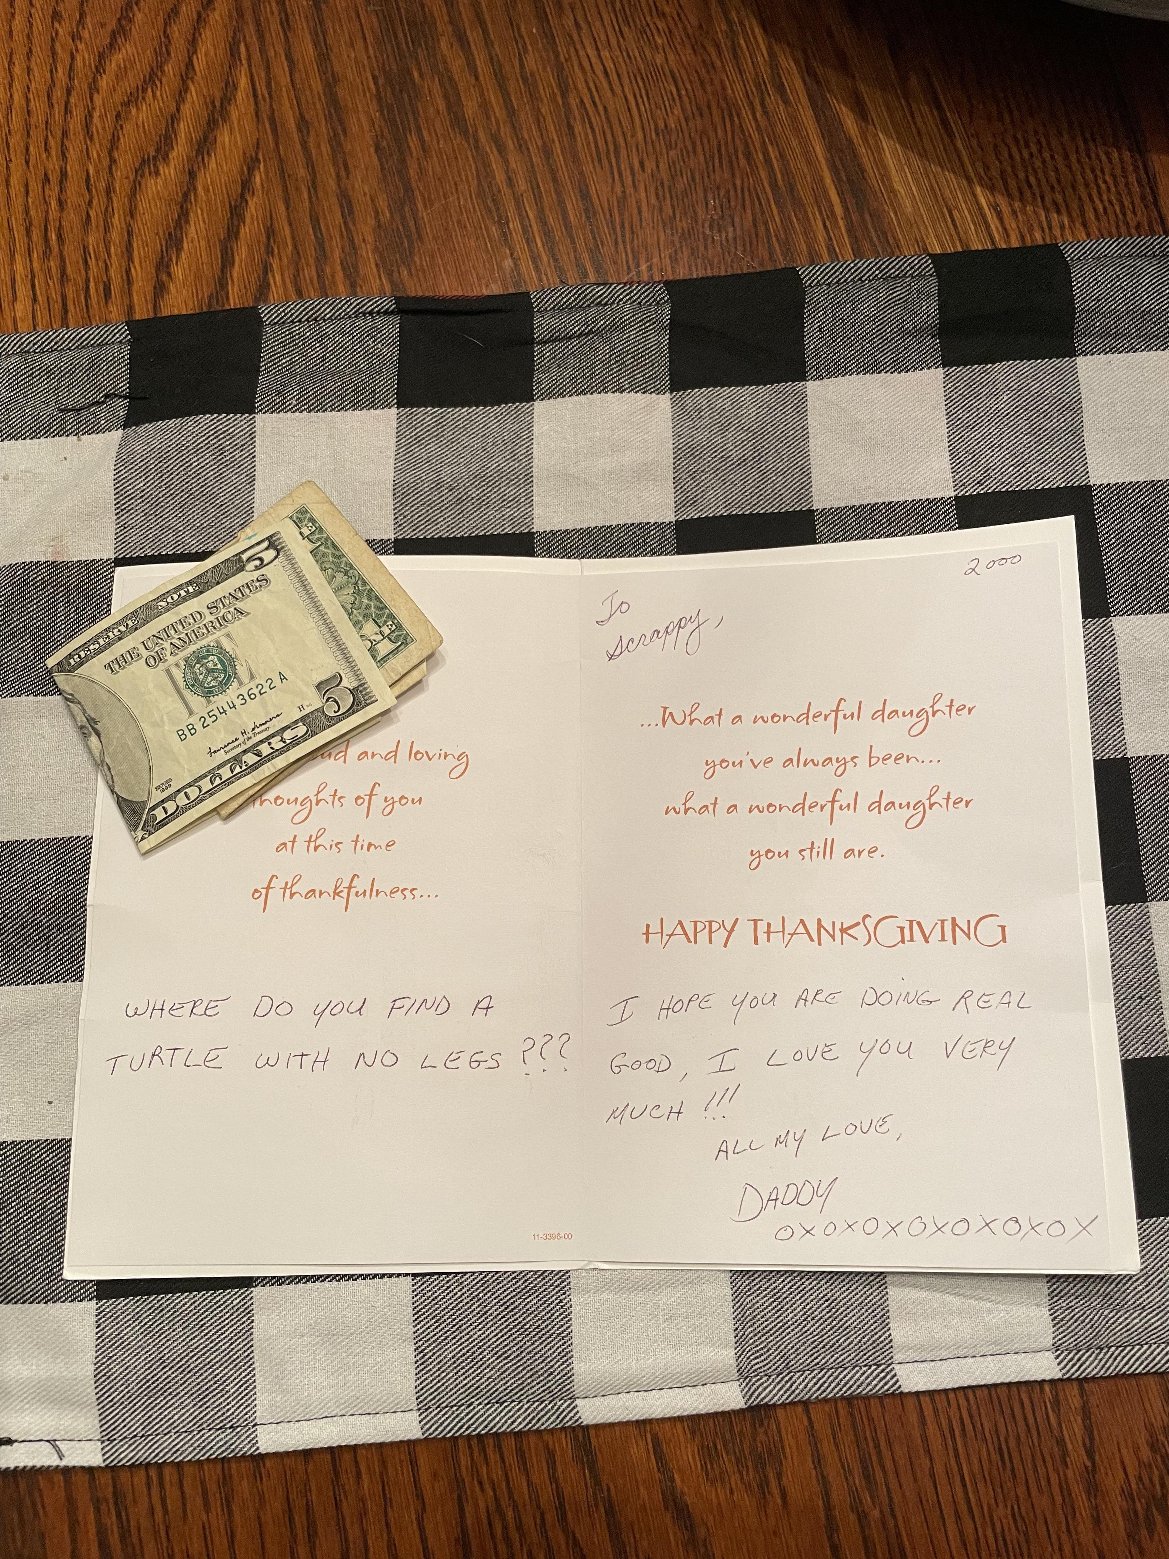 RESERVE NOTE
5
THE UNITED STATES
OF AMERICA
BB 25443622 A
Secretary of the Treasury
5
DOLLARS
ONE
and loving
thoughts of you
at this time
of thankfulness...
WHERE DO YOU FIND A
TURTLE WITH NO LEGS ???
11-3396-00
2000
To
Scrappy,
...What a wonderful daughter
you've always been...
what a wonderful daughter
you still are.
HAPPY THANKSGIVING
I HOPE YOU ARE DOING REAL
GOOD, I LOVE YOU VERY
MUCH !!!
ALL MY LOVE,
DADDY
OXOXOXOXOXOXOX